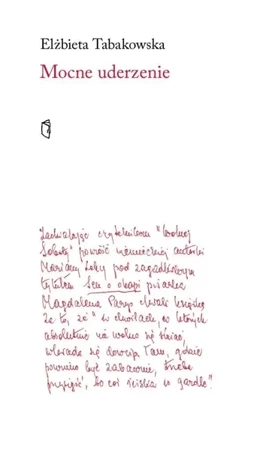 Elżbieta Tabakowska
Mocne uderzenie
Zachwalając czytelnikom "Wolnej
Soboty" powieść niemieckiej autorki
Mariany Leky pod zagadkowym
tytułem Sen o okapi pisarka
Magdalena Parys chwali książkę
za to, że "w chwilach, w których
absolutnie na wolno się śmiać,
wkrada się dowcip. Tam, gdzie
powinno być zabawnie, trzeba
przysiąść, bo coś ściska w gardle".